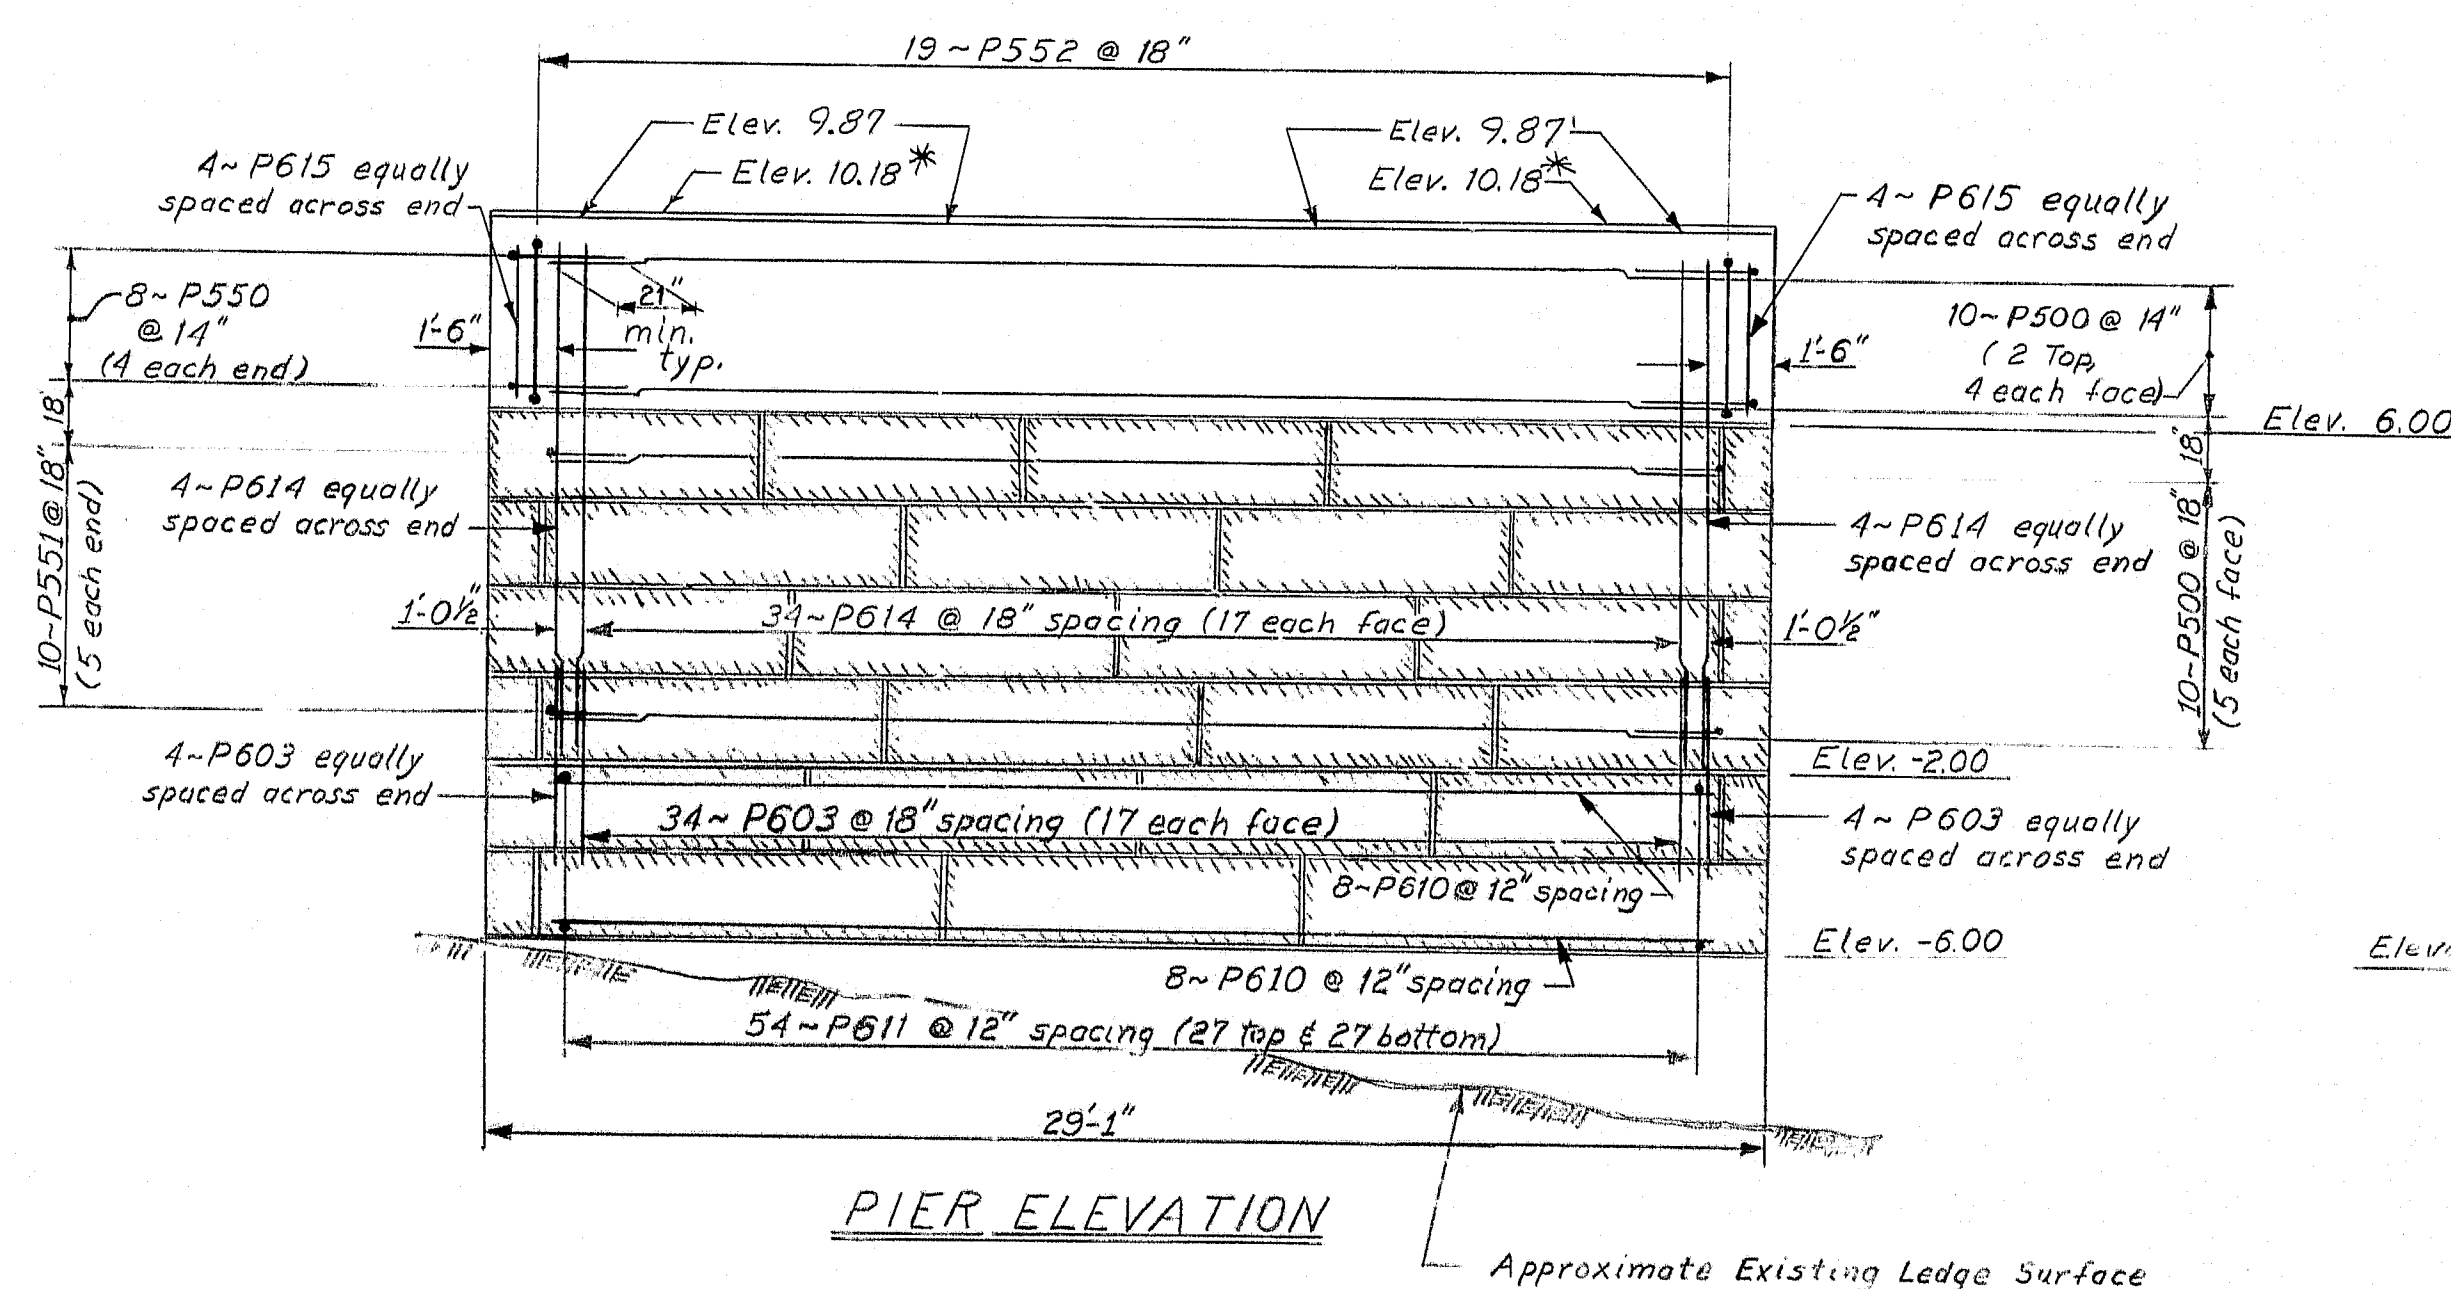 19~P552 @ 18"
Elev. 9.87
Elev. 10.18*
Elev. 9.87'
Elev. 10.18*
4~ P615 equally
spaced across end
4~ P615 equally
spaced across end
8~P550
@ 14"
(4 each end)
1'-6"
21"
min.
typ.
1'-6"
10~P500 @ 14"
(2 Top,
4 each face)
Elev. 6.00
18"
10~P551 @ 18"
(5 each end)
18"
10~P500 @ 18"
(5 each face)
4~P614 equally
spaced across end
4~P614 equally
spaced across end
1'-0½"
34~P614 @ 18" spacing (17 each face)
1'-0½"
4~P603 equally
spaced across end
Elev. -2.00
34~ P603 @ 18" spacing (17 each face)
4~ P603 equally
spaced across end
8~P610 @ 12" spacing
Elev. -6.00
8~ P610 @ 12" spacing
54~P611 @ 12" spacing (27 top & 27 bottom)
29'-1"
PIER ELEVATION
Approximate Existing Ledge Surface